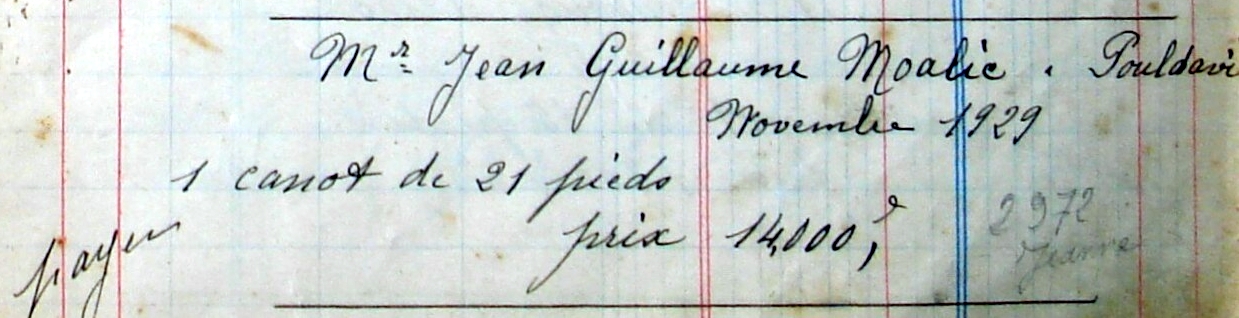 Mr Jean Guillaume Moalic . Pouldavi
Novembre 1929
1 canot de 21 pieds
prix 14,000,
payer
2972
Jeanne